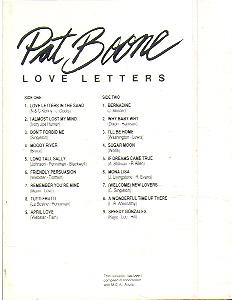 Pat Boone
LOVE LETTERS
SIDE ONE
1. LOVE LETTERS IN THE SAND
2. I ALMOST LOST MY MIND
(Ivory Joe Hunter)
3. DON'T FORBID ME
(Singleton)
4. MOODY RIVER
(Bruce)
5. LONG TALL SALLY
(Johnson - Penniman - Blackwell)
6. FRIENDLY PERSUASION
(Webster - Tiomkin)
7. REMEMBER YOU'RE MINE
8. TUTTI FRUTTI
9. APRIL LOVE
(Webster - Fain)
SIDE TWO
1. BERNADINE
(J. Mercer)
2. WHY BABY WHY
3. I'LL BE HOME
(Washington - Lewis)
4. SUGAR MOON
(Wolfe)
5. IF DREAMS CAME TRUE
6. MONA LISA
(J. Livingstone - R. Evans)
7. (WELCOME) NEW LOVERS
(C. Singleton)
8. A WONDERFUL TIME UP THERE
9. SPEEDY GONZALES